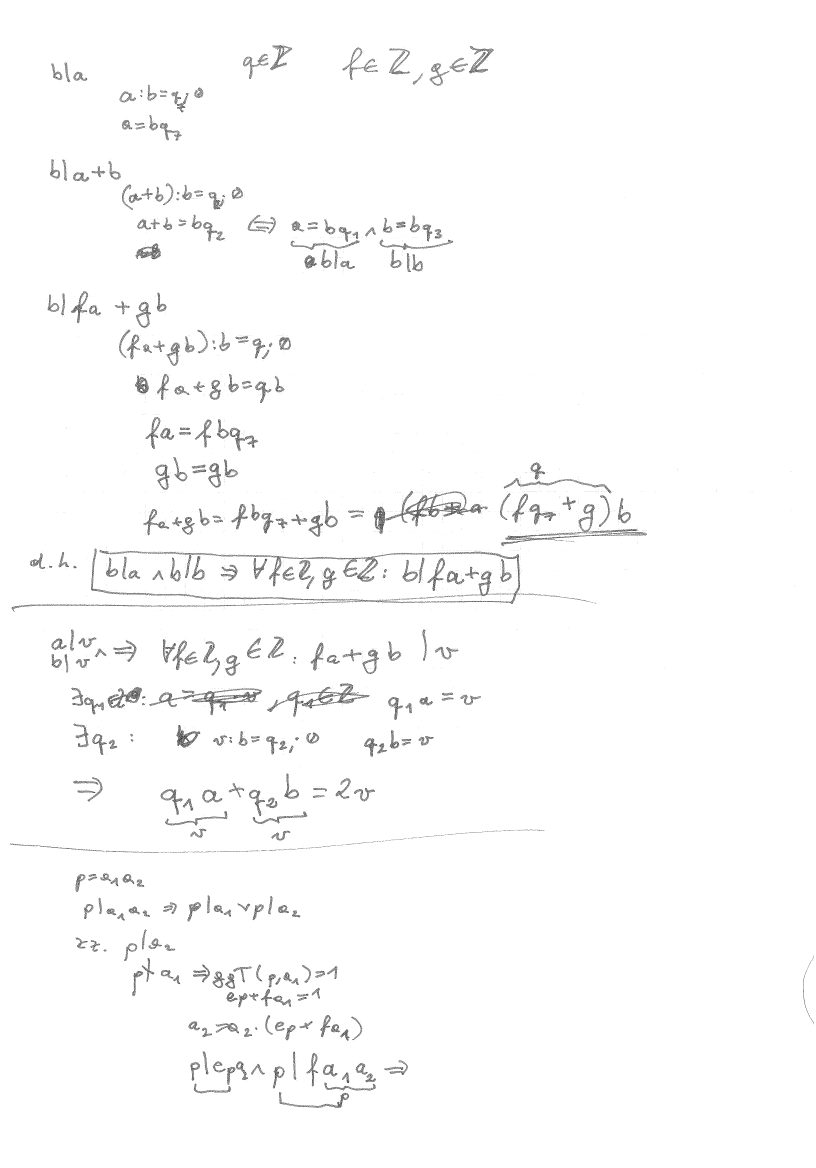 b|a q∈ℤ f∈ℤ, g∈ℤ
a:b=q; 0
a=bq₇
b|a+b
(a+b):b=q; 0
a+b=bq₂ ⇔ a=bq₁ ∧ b=bq₃
b|a b|b
b|fa+gb
(fa+gb):b=q; 0
fa+gb=qb
fa=fbq₇
gb=gb
q
fa+gb=fbq₇+gb= (fq₇+g)b
d.h. b|a ∧ b|b ⇒ ∀f∈ℤ, g∈ℤ: b|fa+gb
a|v ∧ ⇒ ∀f∈ℤ, g∈ℤ: fa+gb|v
b|v
∃q₁: q₁a=v
∃q₂: v:b=q₂; 0 q₂b=v
⇒ q₁a+q₂b=2v
v v
p=a₁a₂
p|a₁a₂ ⇒ p|a₁ ∨ p|a₂
zz. p|a₂
p∤a₁ ⇒ ggT(p,a₁)=1
ep+fa₁=1
a₂=a₂·(ep+fa₁)
∧ p|fa₁a₂ ⇒
p